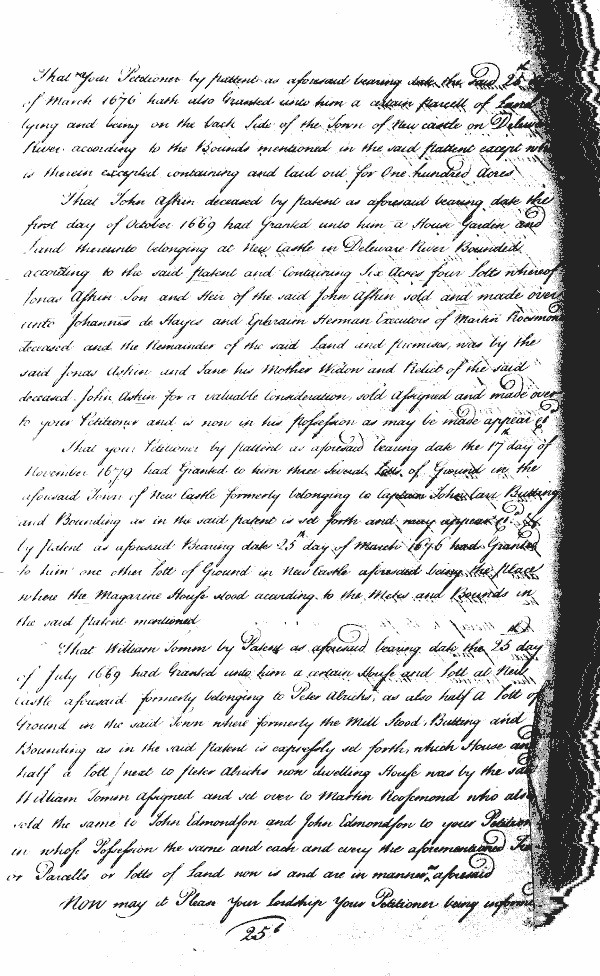 That Your Petitioner by patent as aforesaid bearing date the said 25th
of March 1676 hath also Granted unto him a certain parcell of Land
lying and being on the back Side of the Town of New castle on Delaw
River according to the Bounds mentioned in the said patent except wh
is therein excepted containing and laid out for One hundred Acres
That John Askin deceased by patent as aforesaid bearing date the
first day of October 1669 had Granted unto him a House Garden and
Land thereunto belonging at New Castle in Deleware River Bounded
according to the said patent and Containing Six Acres four Lotts whereof
Jonas Askin Son and Heir of the said John Askin sold and made over
unto Johannes de Hayes and Ephraim Herman Executors of Martin Roesmond
deceased and the Remainder of the said Land and premises, was by the
said Jonas Askin and Jane his Mother Widow and Relict of the said
deceased John Askin for a valuable Consideration sold Assigned and made over
to your Petitioner and is now in his possession as may be made appear &c
That your Petitioner by pattent as aforesaid bearing date the 17th day of
November 1679 had Granted to him three Several Lotts of Ground in the
aforesaid Town of New Castle formerly belonging to Captain John Carr Butting
and Bounding as in the said patent is set forth and may appear &c &
by patent as aforesaid Bearing date 25th day of March 1676 had Granted
to him one other lott of Ground in New Castle aforesaid being the place
where the Magazine House stood according to the Metes and Bounds in
the said patent mentioned
That William Tomm by Patent as aforesaid bearing date the 25th day
of July 1669 had Granted unto him a certain House and lott at New
Castle aforesaid formerly belonging to Peter Alrichs, as also half a lott of
Ground in the said Town where formerly the Mill Stood, Butting and
Bounding as in the said patent is expressly set forth, which House an
half a lott (next to Peter Alrichs now dwelling House was by the sa
William Tomm Assigned and set over to Martin Roosemond who also
sold the same to John Edmondson and John Edmondson to your Petition
in whose Possession the same and each and every the aforementioned
or Parcells or lotts of Land now is and are in manner as aforesaid
Now may it Please Your lordship Your Petitioner being informe
256